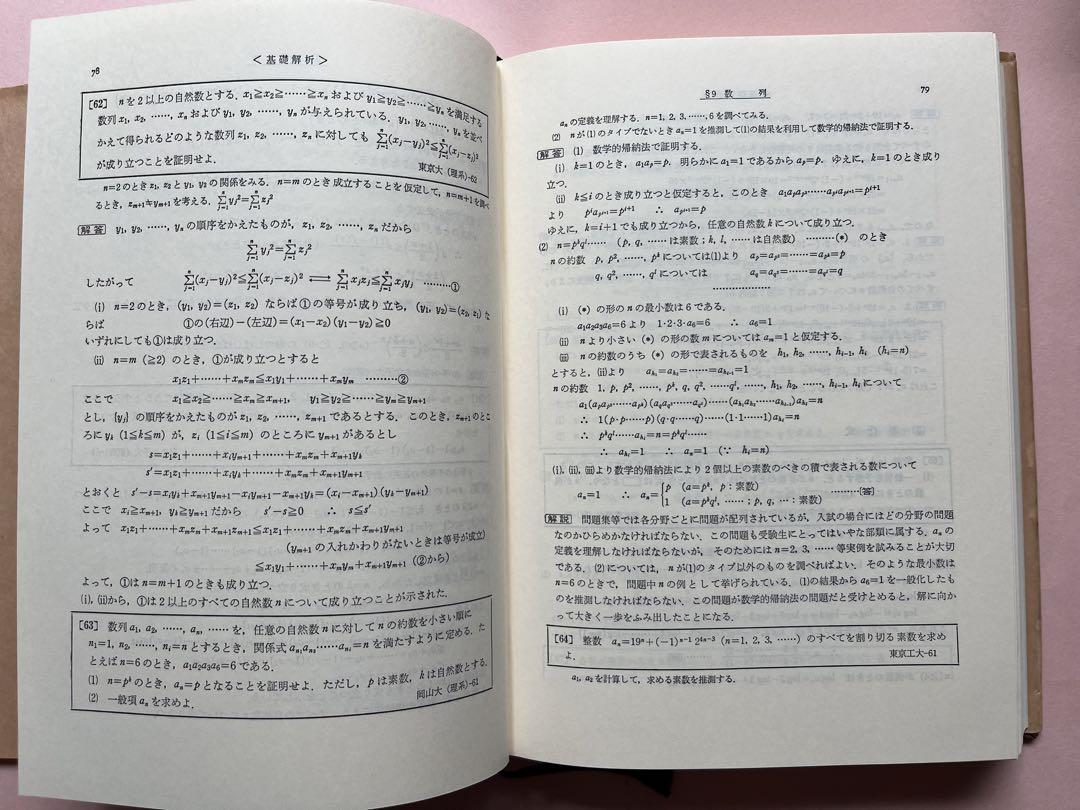 78
<基礎解析>
[62] nを2以上の自然数とする.x₁≧x₂≧……≧xₙ および y₁≧y₂≧……≧yₙ を満足する
数列 x₁, x₂, ……, xₙ および y₁, y₂, ……, yₙ が与えられている.y₁, y₂, ……, yₙ を並べ
かえて得られるどのような数列 z₁, z₂, ……, zₙ に対しても Σⁿⱼ₌₁(xⱼ−yⱼ)²≦Σⁿⱼ₌₁(xⱼ−zⱼ)²
が成り立つことを証明せよ.
東京大(理系)-62
n=2のとき z₁, z₂ と y₁, y₂ の関係をみる.n=m のとき成立することを仮定して,n=m+1 を調べ
るとき,zₘ₊₁≠yₘ₊₁ を考える.Σⁿⱼ₌₁yⱼ²=Σⁿⱼ₌₁zⱼ²
[解答] y₁, y₂, ……, yₙ の順序をかえたものが,z₁, z₂, ……, zₙ だから
Σⁿⱼ₌₁yⱼ²=Σⁿⱼ₌₁zⱼ²
したがって Σⁿⱼ₌₁(xⱼ−yⱼ)²≦Σⁿⱼ₌₁(xⱼ−zⱼ)² ⟺ Σⁿⱼ₌₁xⱼzⱼ≦Σⁿⱼ₌₁xⱼyⱼ ………①
(i) n=2のとき,(y₁, y₂)=(z₁, z₂) ならば①の等号が成り立ち,(y₁, y₂)=(z₂, z₁) な
らば ①の(右辺)−(左辺)=(x₁−x₂)(y₁−y₂)≧0
いずれにしても①は成り立つ.
(ii) n=m (≧2) のとき,①が成り立つとすると
x₁z₁+……+xₘzₘ≦x₁y₁+……+xₘyₘ ………②
ここで x₁≧x₂≧……≧xₘ≧xₘ₊₁, y₁≧y₂≧……≧yₘ≧yₘ₊₁
とし,{yⱼ} の順序をかえたものが z₁, z₂, ……, zₘ₊₁ であるとする.このとき,zₘ₊₁のとこ
ろに yₖ (1≦k≦m) が,zᵢ (1≦i≦m) のところに yₘ₊₁ があるとし
s=x₁z₁+……+xᵢyₘ₊₁+……+xₘzₘ+xₘ₊₁yₖ
s′=x₁z₁+……+xᵢyₖ+……+xₘzₘ+xₘ₊₁yₘ₊₁
とおくと s′−s=xᵢyₖ+xₘ₊₁yₘ₊₁−xᵢyₘ₊₁−xₘ₊₁yₖ=(xᵢ−xₘ₊₁)(yₖ−yₘ₊₁)
ここで xᵢ≧xₘ₊₁, yₖ≧yₘ₊₁だから s′−s≧0 ∴ s≦s′
よって x₁z₁+……+xₘzₘ+xₘ₊₁zₘ₊₁≦x₁z₁+……+xₘzₘ+xₘ₊₁yₘ₊₁
(yₘ₊₁ の入れかわりがないときは等号が成立)
≦x₁y₁+……+xₘyₘ+xₘ₊₁yₘ₊₁ (②から)
よって,①は n=m+1 のときも成り立つ.
(i),(ii)から,①は2以上のすべての自然数 n について成り立つことが示された.
[63] 数列 a₁, a₂, ……, aₙ, …… を,任意の自然数 n に対して n の約数を小さい順に
n₁=1, n₂, ……, nᵢ=n とするとき,関係式 aₙ₁aₙ₂……aₙᵢ=n を満たすように定める.た
とえば n=6 のとき,a₁a₂a₃a₆=6 である.
(1) n=pᵏ のとき,aₙ=p となることを証明せよ.ただし,p は素数,k は自然数とする.
(2) 一般項 aₙ を求めよ.
岡山大(理系)-61
§9 数 列
79
aₙ の定義を理解する.n=1, 2, 3, ……, 6 を調べてみる.
(2) n が(1)のタイプでないとき aₙ=1 を推測して(1)の結果を利用して数学的帰納法で証明する.
[解答] (1) 数学的帰納法で証明する.
(i) k=1 のとき,a₁aₚ=p. 明らかに a₁=1 であるから aₚ=p. ゆえに,k=1 のとき成り
立つ.
(ii) k≦i のとき成り立つと仮定すると,このとき a₁aₚaₚ₂……aₚᵢaₚᵢ₊₁=pⁱ⁺¹
より pⁱaₚᵢ₊₁=pⁱ⁺¹ ∴ aₚᵢ₊₁=p
ゆえに,k=i+1 でも成り立つから,任意の自然数 k について成り立つ.
(2) n=pᵏqˡ…… (p, q, …… は素数;k, l, …… は自然数) ………(*) のとき
n の約数 p, p², ……, pᵏ については(1)より aₚ=aₚ₂=……=aₚₖ=p
q, q², ……, qˡ については a_q=a_q²=……=a_qˡ=q
………………
(i) (*) の形の n の最小数は 6 である.
a₁a₂a₃a₆=6 より 1·2·3·a₆=6 ∴ a₆=1
(ii) n より小さい (*) の形の数 m については aₘ=1 と仮定する.
(iii) n の約数のうち (*) の形で表されるものを h₁, h₂, ……, hᵢ₋₁, hᵢ (hᵢ=n)
とすると,(ii)より aₕ₁=aₕ₂=……=aₕᵢ₋₁=1
n の約数 1, p, p², ……, pᵏ, q, q², ……qˡ, ……, h₁, h₂, ……, hᵢ₋₁, hᵢ について
a₁(aₚaₚ₂……aₚₖ)(a_qa_q²……a_qˡ)……(aₕ₁aₕ₂……aₕᵢ₋₁)aₕᵢ=n
∴ 1(p·p……p)(q·q……q)……(1·1……1)aₕᵢ=n
∴ pᵏqˡ……aₕᵢ=n=pᵏqˡ……
∴ aₕᵢ=1 ∴ aₙ=1 (∵ hᵢ=n)
(i),(ii),(iii)より数学的帰納法により2個以上の素数のべきの積で表される数について
aₙ=1 ∴ aₙ={p (a=pᵏ, p:素数)
1 (a=pᵏqˡ, ……;p, q, …:素数) ………[答]
[解説] 問題集等では各分野ごとに問題が配列されているが,入試の場合にはどの分野の問題
なのかひらめかなければならない.この問題も受験生にとってはいやな部類に属する.aₙ の
定義を理解しなければならないが,そのためには n=2, 3, …… 等実例を試みることが大切
である.(2)については,n が(1)のタイプ以外のものを調べればよい.そのような最小数は
n=6 のときで,問題中 n の例として挙げられている.(1)の結果から a₆=1 を一般化したも
のを推測しなければならない.この問題が数学的帰納法の問題だと受けとめると,解に向か
って大きく一歩をふみ出したことになる.
[64] 整数 aₙ=19ⁿ+(−1)ⁿ⁻¹2⁴ⁿ⁻³ (n=1, 2, 3, ……) のすべてを割り切る素数を求め
よ.
東京工大-61
a₁, a₂ を計算して,求める素数を推測する.